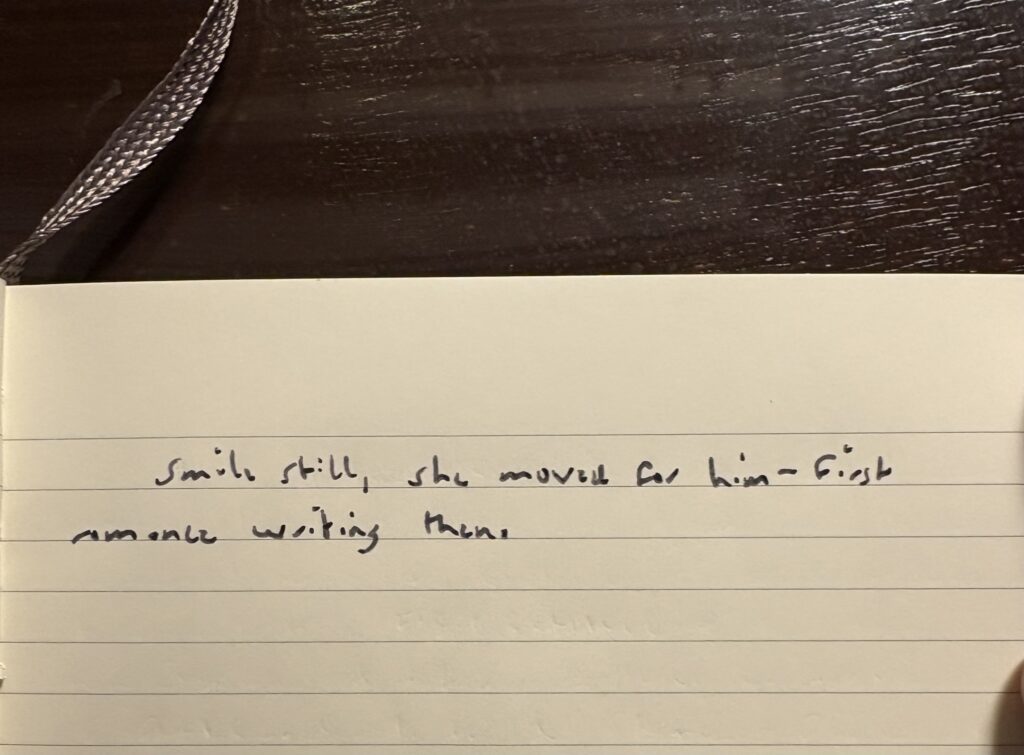 Smile still, she moved for him - first
romance writing them.